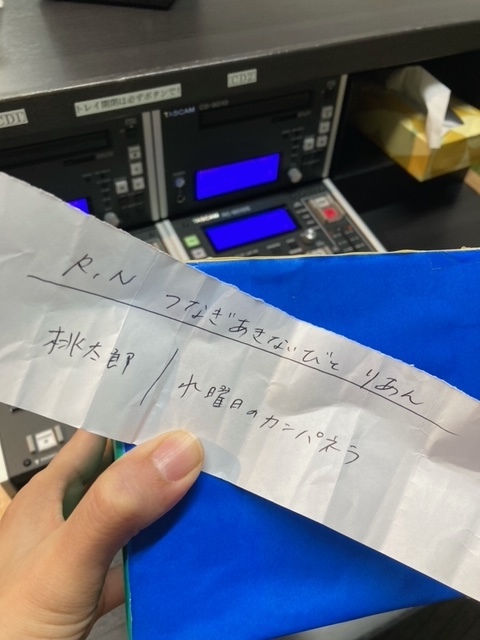 CD1
CD2
トレイ開閉は必ずボタンで!
TASCAM
TASCAM
R.N つなぎあきないびと りあん
桃太郎/水曜日のカンパネラ